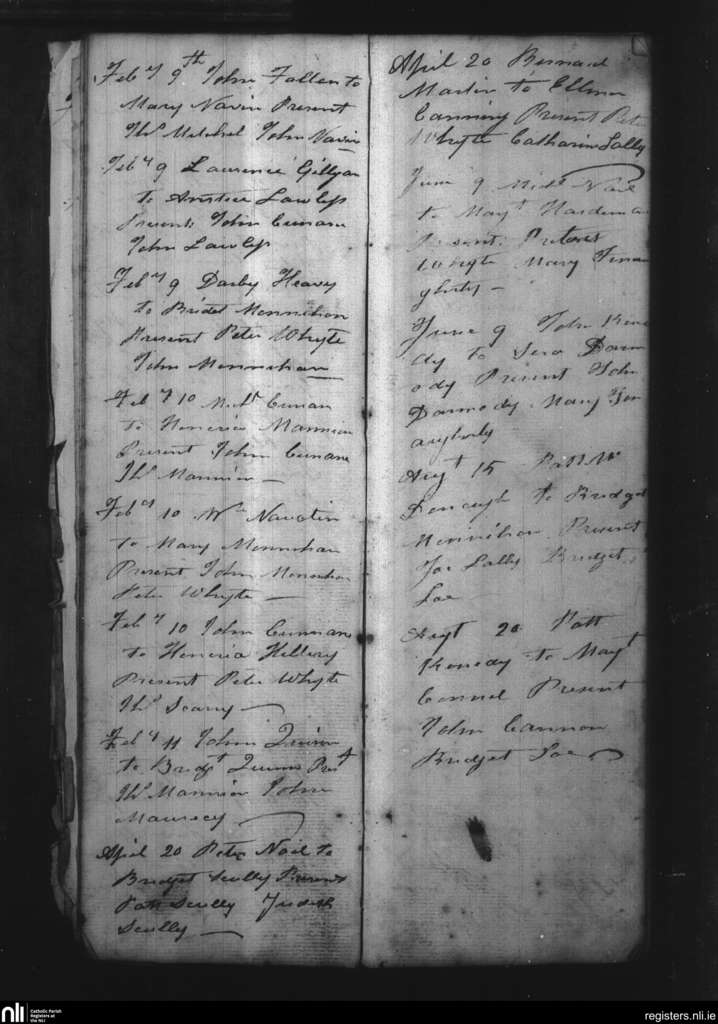 Feby 9th John Fallen to
Mary Navin Present
Ths Mitchel John Navin
Feby 9 Laurence Gillgan
to Anstice Lawless
Present John Cunane
John Lawless
Feby 9 Darby Heavy
to Bridet Monnihan
Present Peter Whyte
John Monnihan
Feby 10 Michl Cunan
to Honoria Mannion
Present John Cunane
Ths Mannion
Feby 10 Wm
to Mary Monnihan
Present John Monnihan
Peter Whyte
Feby 10 John Cunnane
to Honoria Killery
Present Peter Whyte
Ths Scarry
Feby 11 John Quinn
to Bridgt Quinn Prest
Ths Mannion John
April 20 Peter Nail to
Bridget Scully Present
Patt Scully Judith
Scully
April 20 Bernard
Martin to Ellenor
Canning Present Peter
Whyte Catharin Lally
June 9 Michl Nail
to Mayt Hardiman
Present
Whyte Mary Finau
ghty
June 9 John Kene
dy to Darm
ody Present John
Darmody Mary Fin
augherty
Augt 15 Patt Mc
Donough to Bridget
Monnihan Present
Joe Lally Bridget
Loe
Augt 20 Patt
Kenedy to Mayt
Connel Present
John Cannon
Bridget Loe
nli
Catholic Parish
Registers at
the NLI
registers.nli.ie